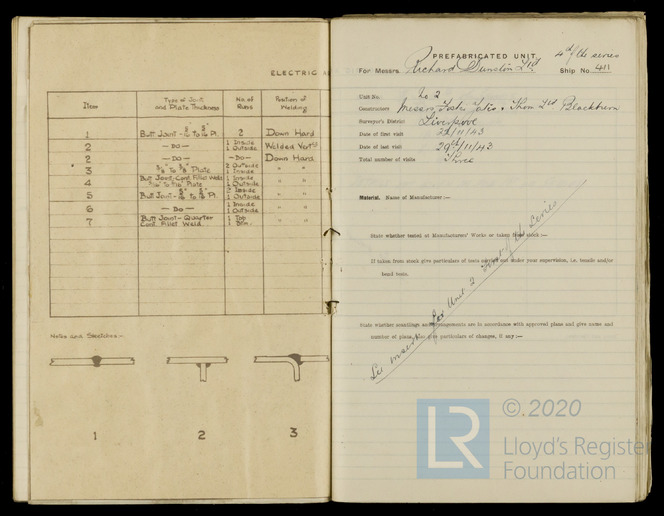 ELECTRIC
Item
Type of Joint and Plate Thickness
No. of Runs
Position of Welding
1 Butt Joint- 2 Down Hand
2 — DO — 1 Inside 1 Outside Welded Vert
2 — DO — — DO — Down Hand
3 Plate 2 Outside 1 Inside " "
4 Butt Joint-Cont. Fillet Weld. Plate 1 Inside 1 Outside " "
5 Butt Joint- Pl. Inside 1 Outside " "
6 — DO — 1 Inside 1 Outside " "
7 Butt Joint - Quarter Cont. Fillet Weld. 1 Top 1 " "
Notes and Sketches:-
1
2
3
PREFABRICATED UNIT
4th of the series
For Messrs. Richard Dunston Ltd
Ship No. 411
Unit No. No 2
Constructors Messrs Foster, Yates & Thom Ltd Blackburn
Surveyor's District Liverpool
Date of first visit /11/43
Date of last visit 29th/11/43
Total number of visits Three
Material. Name of Manufacturer:—
State whether tested at Manufacturers' Works or taken from stock:—
If taken from stock give particulars of tests carried out under your supervision, i.e. tensile and/or
bend tests.
State whether scantlings and arrangements are in accordance with approved plans and give name and
number of plans. Also give particulars of changes, if any:—
See insert for Unit 2 of the series
LR
©.2020
Lloyd's Register
Foundation